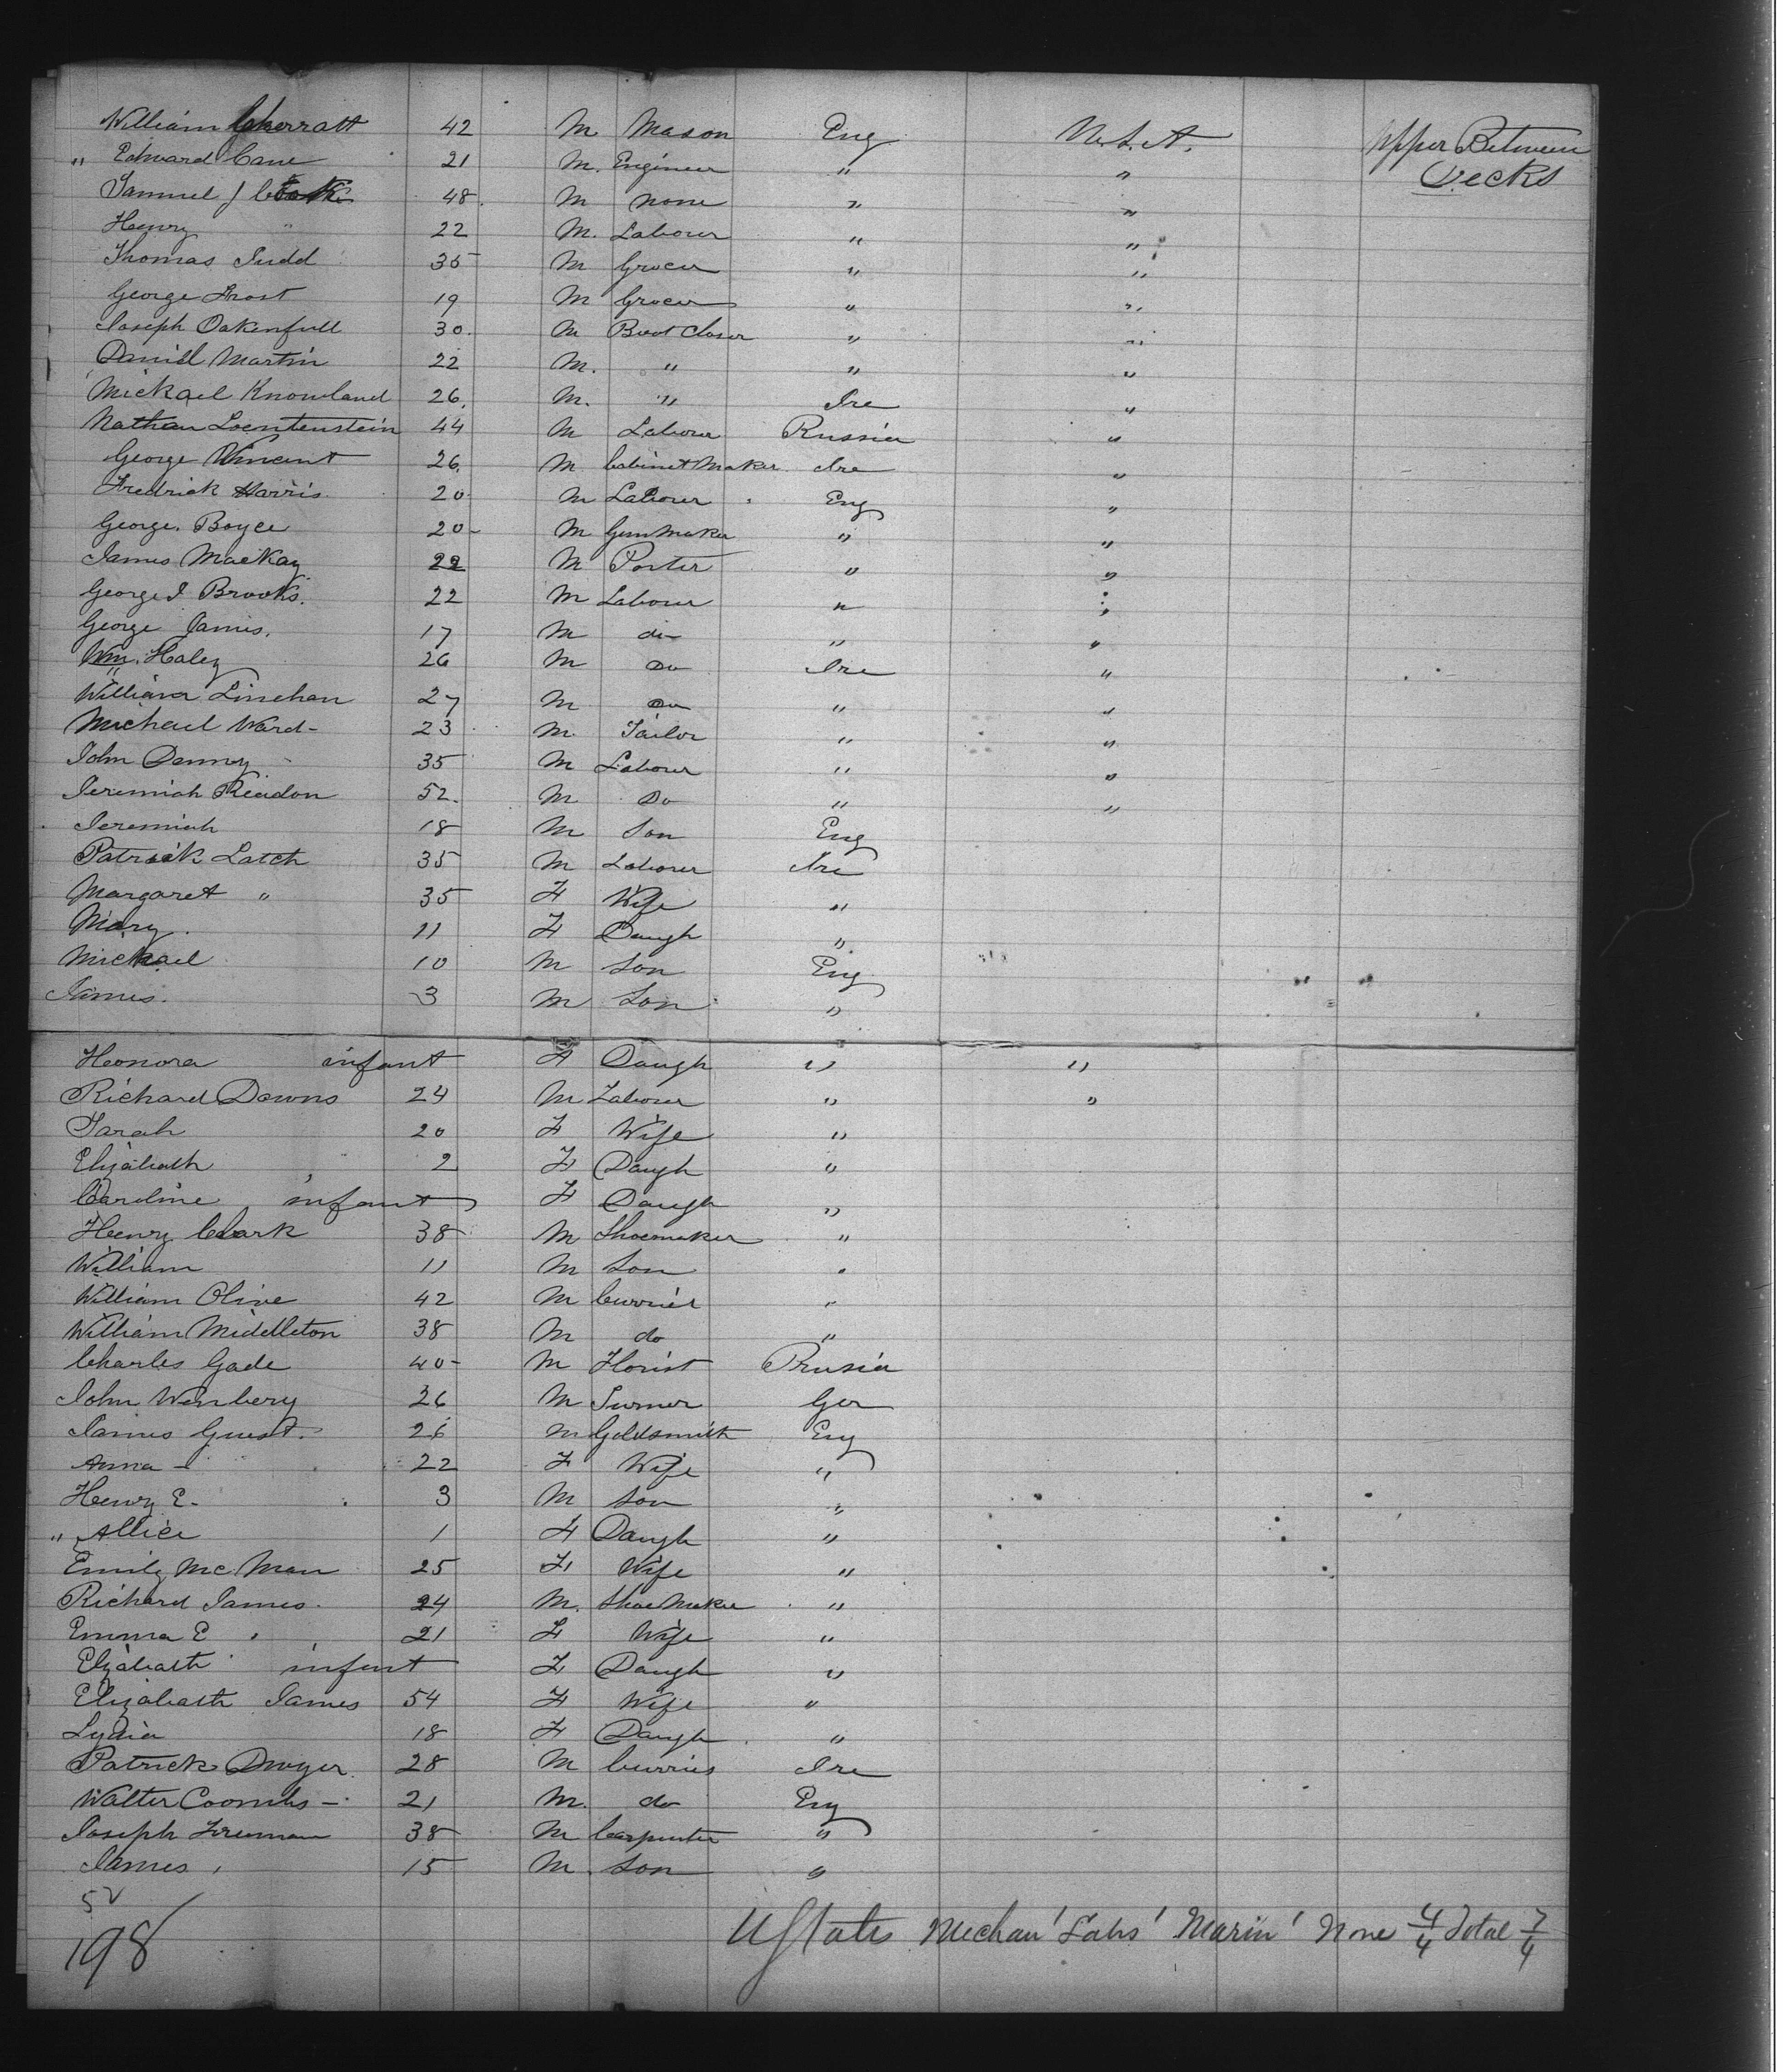 William Cherratt 42 M Mason Eng U.S.A. Upper Between
" Edward Cane 21 M. Engineer " " Decks
Samuel J 48. M none " "
Henry " 22 M. Labourer " "
Thomas Judd 35 M Grocer " "
George Frost 19 M Grocer " "
Joseph Oakenfull 30. M Boot Closer " "
Daniel Martin 22 M. " " "
Mickael Knowland 26. M. " Ire "
Nathan Loentenstein 44 M Labourer Russia "
George Vincent 26. M Cabinet Maker Ire "
Fredrick Harris. 20 M Labourer Eng "
George. Boyce 20- M Gunmaker " "
James MacKay. 22 M Porter " "
George J Brooks. 22 M Labourer " "
George James. 17 M do " "
Wm. Haley 26 M Do Ire "
William Linehan 27 M Do " "
Michael Ward- 23 M. Tailor " "
John Denny 35 M Labourer " "
Jeremiah Readon 52. M Do " "
Jeremiah 18 M Son Eng
Patrick Latch 35 M Labourer Ire
Margaret " 35 F Wife "
Mary. 11 F Daugh "
Mickael 10 M Son Eng
James. 3 M Son "
Honora infant F Daugh " "
Richard Downs 24 M Labourer " "
Sarah 20 F Wife "
Elizabath 2 F Daugh "
Caroline infant F Daugh "
Henry Clark 38 M Shoemaker "
William 11 M Son "
William Olive 42 M Currier "
William Middleton 38 M do "
Charles Gade 40- M Florist Prusia
John Winbery 26 M Turner Ger
James Guest. 26 M Goldsmith Eng
Anna - 22 F Wife "
Henry E- 3 M Son "
" Allice 1 F Daugh "
Emily Mc Man 25 F Wife "
Richard James. 24 M. Shoe Maker "
Emma E 21 F Wife "
Elizabath infant F Daugh "
Elizabath James 54 F Wife "
Lydia 18 F Daugh "
Patrick Dwyer 28 M Currier Ire
Walter Coombs - 21 M. do Eng
Joseph Freeman 38 M Carpenter "
James 15 M. Son "
52
198 UStates Mechan' Labs' Marin' None 4/4 Total 7/4